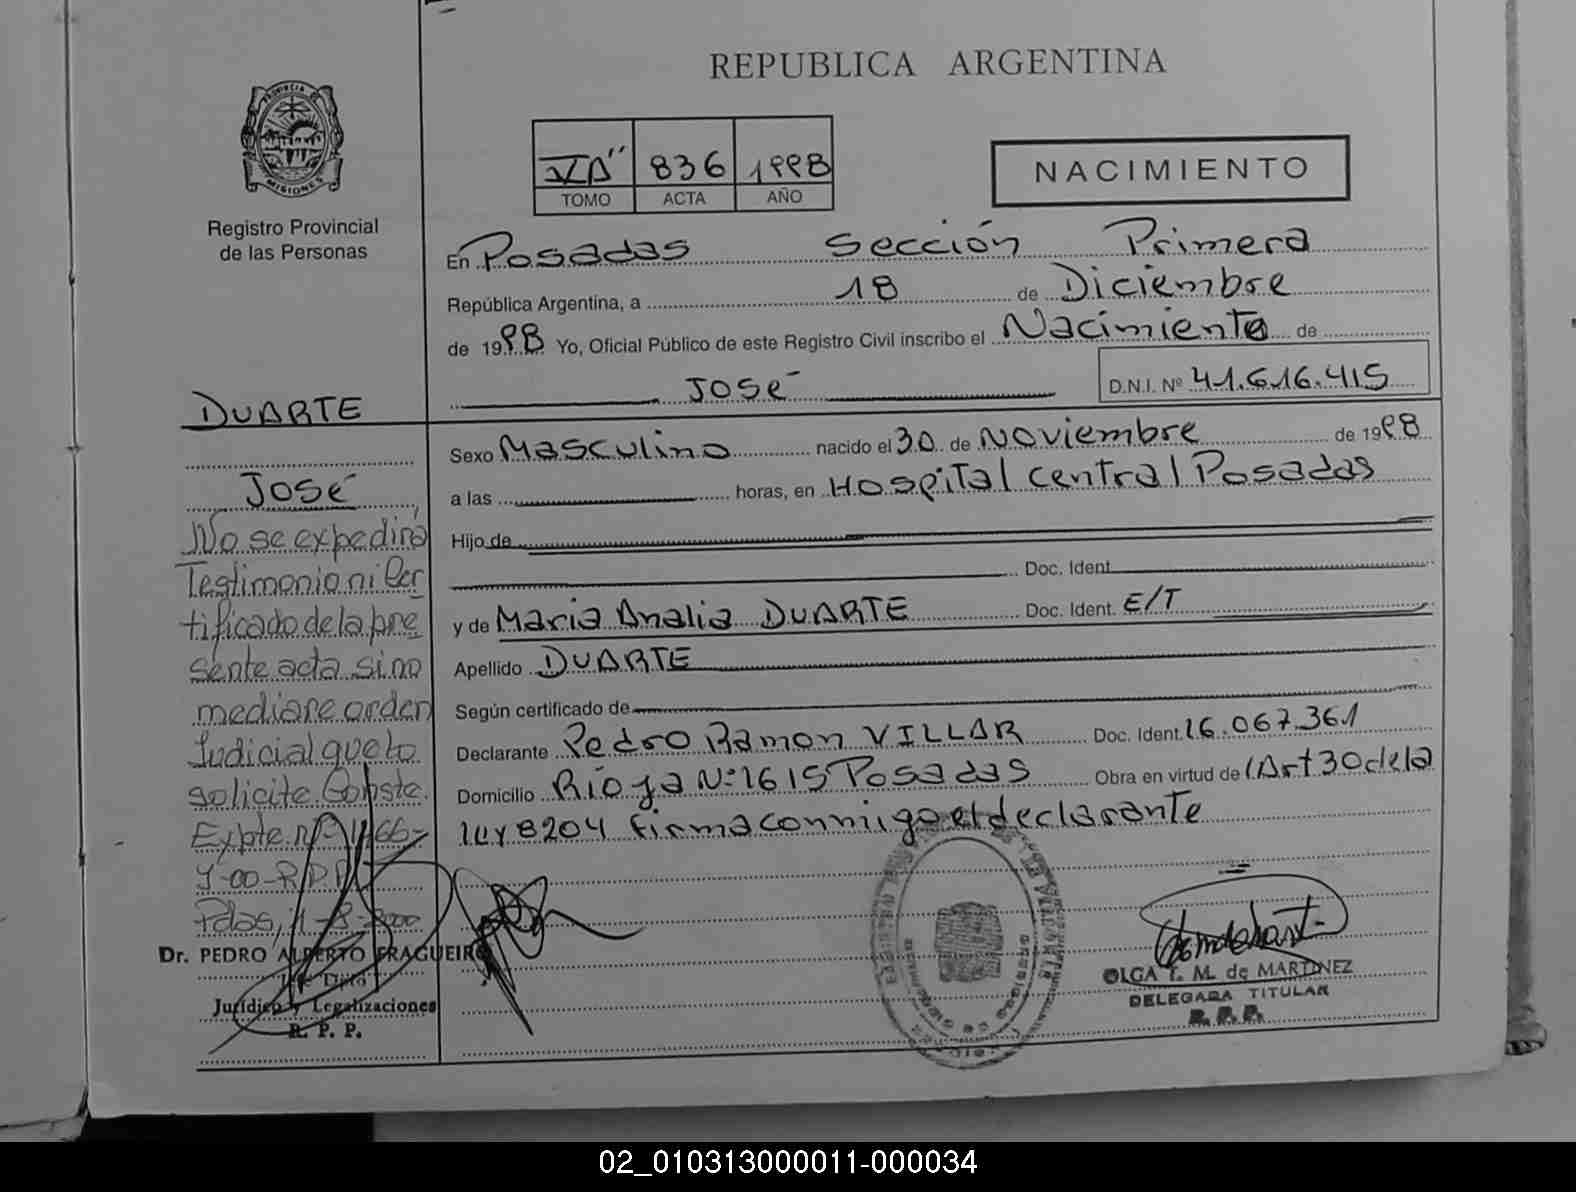 REPUBLICA ARGENTINA
PROVINCIA DE
MISIONES
Registro Provincial
de las Personas
836 1998
TOMO ACTA AÑO
NACIMIENTO
En Posadas Sección Primera
República Argentina, a 18 de Diciembre
de 1998 Yo, Oficial Público de este Registro Civil inscribo el Nacimiento de
José D.N.I. Nº 41.616.415
DUARTE
José
Sexo Masculino nacido el 30 de Noviembre de 1998
a las horas, en Hospital Central Posadas
Hijo de
Doc. Ident.
y de Maria Analia DUARTE Doc. Ident. E/T
Apellido DUARTE
Según certificado de
Declarante Pedro Ramon VILLAR Doc. Ident. 16.067.361
Domicilio Rioja Nº 1615 Posadas Obra en virtud de (Art 30 de la
ley 8204 firma conmigo el declarante
No se expedirá
Testimonio ni Cer
tificado de la pre
sente acta si no
mediare orden
Judicial que lo
solicite. Conste.
Expte. nº
Y-00-R.P.P.
Pdas, -8-2000
Dr. PEDRO ALBERTO FRAGUEIRO
Jefe Dpto
Jurídico y Legalizaciones
R. P. P.
OLGA T. M. de MARTINEZ
DELEGADA TITULAR
R. P. P.
02_010313000011-000034